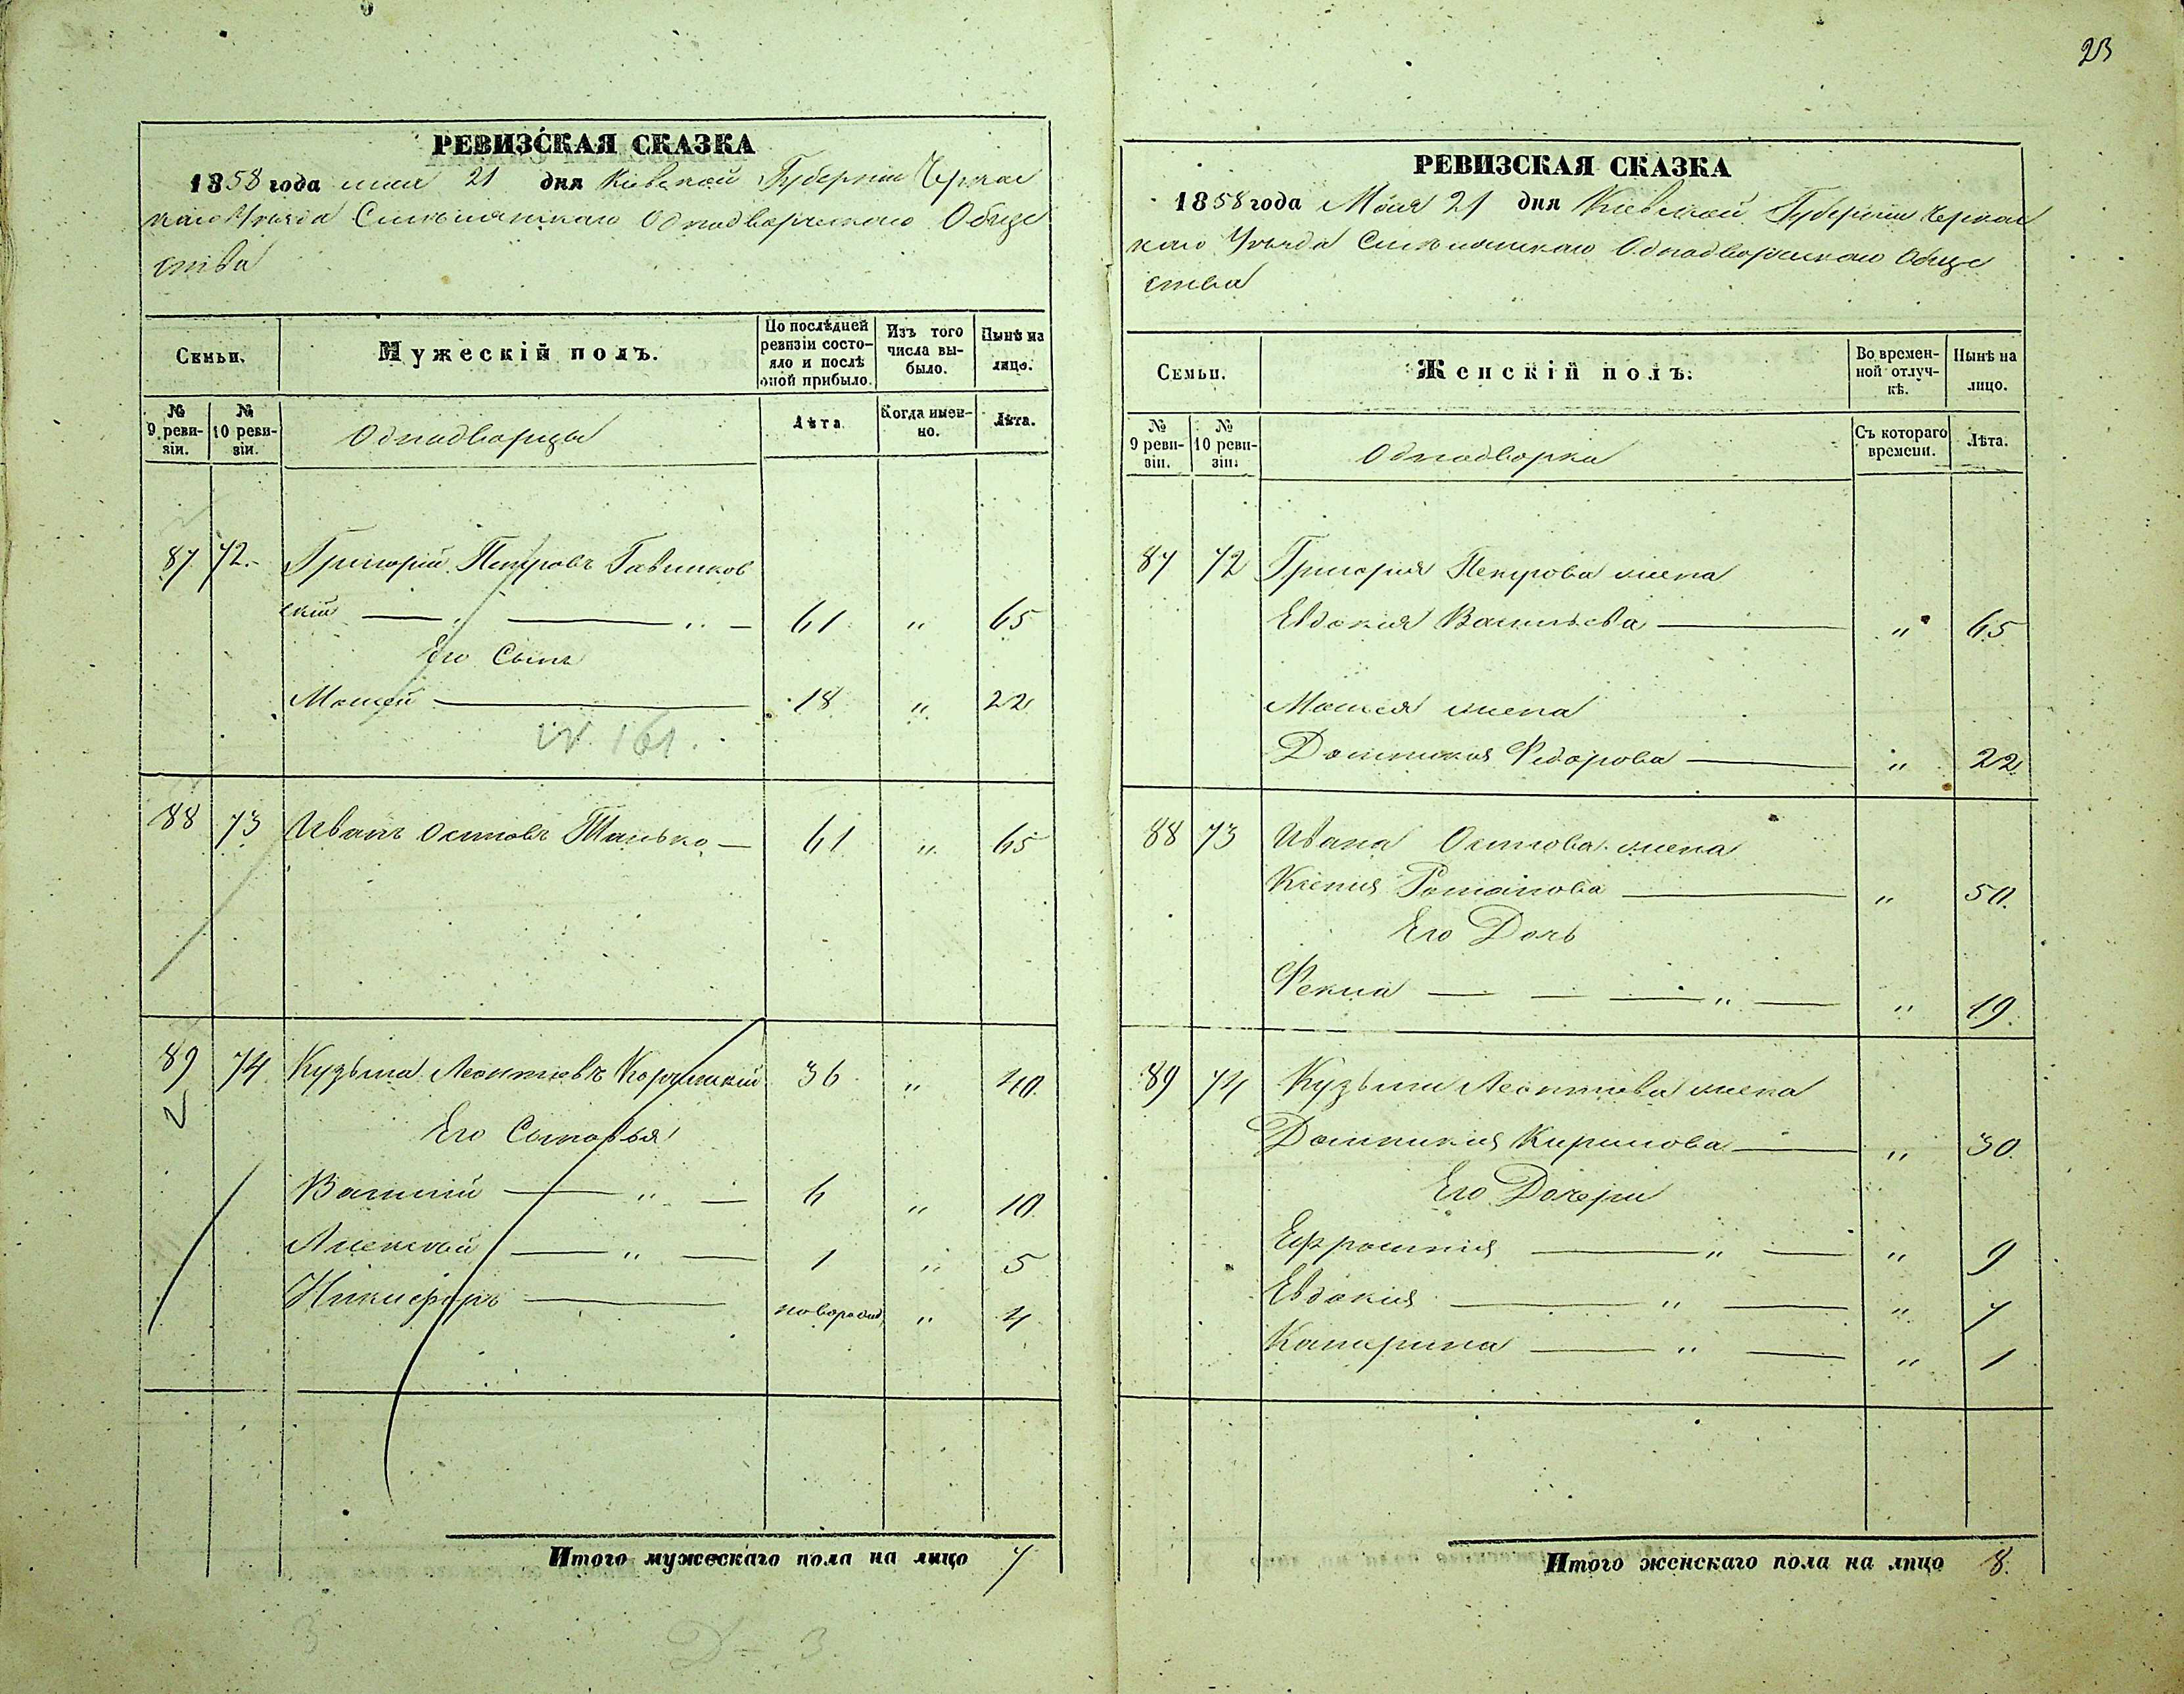 23
РЕВИЗСКАЯ СКАЗКА
1858 года мая 21 дня Кіевской Губерніи Черкас
каго Уѣзда Смѣлянскаго Однодворческаго Обще
ства
Семьи.
Мужескій полъ.
По послѣдней ревизіи состояло и послѣ оной прибыло.
Изъ того числа выбыло.
Нынѣ на лицо.
№ 9 ревизіи.
№ 10 ревизіи.
Однодворцы
Лѣта
Когда именно.
Лѣта.
87 72. Григорій Петровъ
скій — „ — „ — 61 „ 65
Его Сынъ
Мосей — 18 „ 22
№ 161.
88 73 Иванъ Осиповъ — 61 „ 65
89 74 Кузьма Леонтіевъ 36 „ 40
Его Сыновья
Василій — „ — 6 „ 10
Алексѣй — „ — 1 „ 5
Никифоръ — новорожд „ 4
Итого мужескаго пола на лицо 7
3
Д = 3.
РЕВИЗСКАЯ СКАЗКА
1858 года Мая 21 дня Кіевской Губерніи Черкас
каго Уѣзда Смѣлянскаго Однодворческаго Обще
ства
Семьи.
Женскій полъ.
Во временной отлучкѣ.
Нынѣ на лицо.
№ 9 ревизіи.
№ 10 ревизіи.
Однодворки
Съ котораго времени.
Лѣта.
87 72 Григорія Петрова жена
Евдокія Васильева — „ 65
Мосея жена
Домникія Федорова — „ 22
88 73 Ивана Осипова жена
Ксенія Романова — „ 50
Его Дочь
Фекла — — — „ — „ 19.
89 74 Кузьми Леонтіева жена
Домникія Кирилова — „ 30
Его Дочери
Ефросинія — „ — „ 9
Евдокія — „ — „ 7
Катерина — „ — „ 1
Итого женскаго пола на лицо 8.